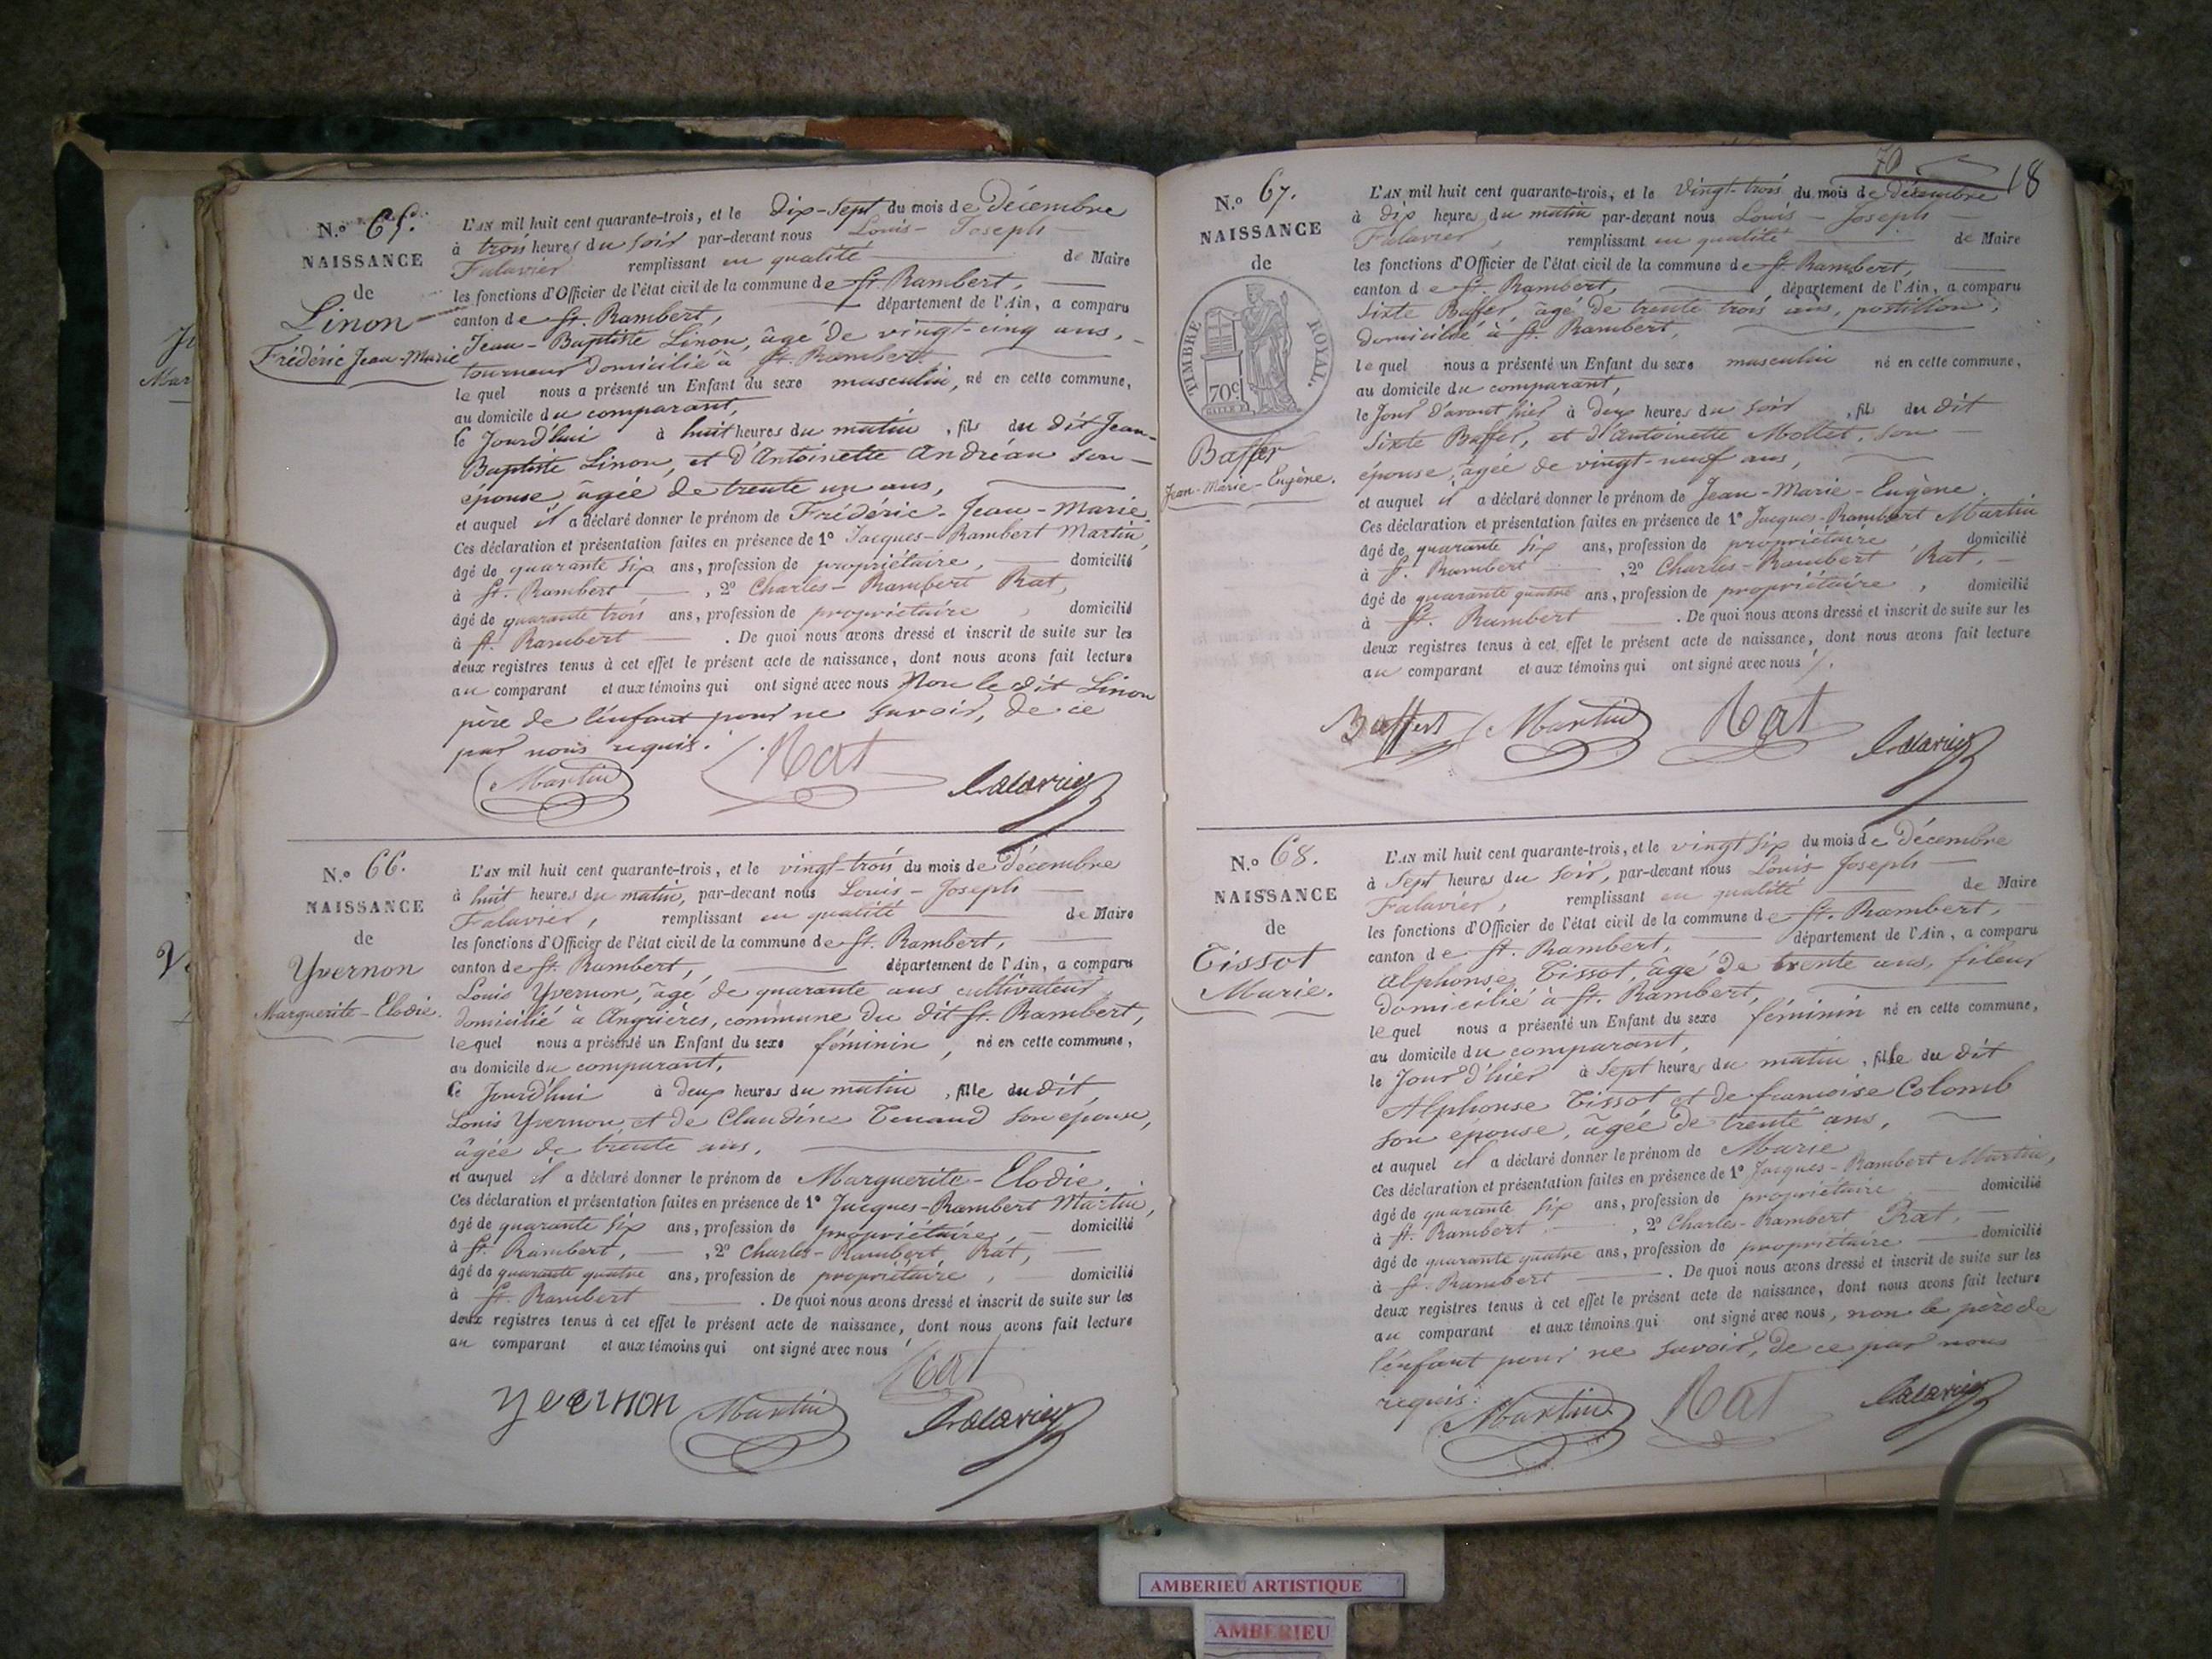 N.o 65.
NAISSANCE
de
Linon
Frédéric Jean-Marie
L'AN mil huit cent quarante-trois, et le dix-sept du mois de Décembre
à trois heures du soir par-devant nous Louis-Joseph
Falavier remplissant en qualité de Maire
les fonctions d'Officier de l'état civil de la commune de St. Rambert,
canton de St. Rambert, département de l'Ain, a comparu
Jean-Baptiste Linon, âgé de vingt-cinq ans,
tourneur domicilié à St. Rambert
lequel nous a présenté un Enfant du sexe masculin, né en cette commune,
au domicile du comparant,
le Jourd'hui à huit heures du matin, fils du dit Jean-
Baptiste Linon, et d'Antoinette Andréan son
épouse, âgée de trente un ans,
et auquel il a déclaré donner le prénom de Frédéric-Jean-Marie.
Ces déclaration et présentation faites en présence de 1o Jacques-Rambert Martin,
âgé de quarante six ans, profession de propriétaire, domicilié
à St. Rambert, 2o Charles-Rambert Rat,
âgé de quarante trois ans, profession de propriétaire, domicilié
à St. Rambert. De quoi nous avons dressé et inscrit de suite sur les
deux registres tenus à cet effet le présent acte de naissance, dont nous avons fait lecture
au comparant et aux témoins qui ont signé avec nous Non le dit Linon
père de l'enfant pour ne savoir, de ce
par nous requis.
Martin Rat Falavier
N.o 66.
NAISSANCE
de
Yvernon
Marguerite-Elodie.
L'AN mil huit cent quarante-trois, et le vingt-trois du mois de Décembre
à huit heures du matin, par-devant nous Louis-Joseph
Falavier, remplissant en qualité de Maire
les fonctions d'Officier de l'état civil de la commune de St. Rambert,
canton de St. Rambert, département de l'Ain, a comparu
Louis Yvernon, âgé de quarante ans cultivateur,
domicilié à Angrières, commune du dit St. Rambert,
lequel nous a présenté un Enfant du sexe féminin, né en cette commune,
au domicile du comparant,
le Jourd'hui à deux heures du matin, fille du dit,
Louis Yvernon, et de Claudine Tenand son épouse,
âgée de trente ans.
et auquel il a déclaré donner le prénom de Marguerite-Elodie.
Ces déclaration et présentation faites en présence de 1o Jacques-Rambert Martin,
âgé de quarante six ans, profession de propriétaire, domicilié
à St. Rambert, 2o Charles-Rambert Rat,
âgé de quarante quatre ans, profession de propriétaire, domicilié
à St. Rambert. De quoi nous avons dressé et inscrit de suite sur les
deux registres tenus à cet effet le présent acte de naissance, dont nous avons fait lecture
au comparant et aux témoins qui ont signé avec nous
Rat
yvernon Martin Falavier
70 18
N.o 67.
NAISSANCE
de
TIMBRE ROYAL.
70c
Baffer
Jean-Marie-Eugène.
L'AN mil huit cent quarante-trois, et le vingt-trois du mois de décembre
à dix heures du matin par-devant nous Louis-Joseph
Falavier, remplissant en qualité de Maire
les fonctions d'Officier de l'état civil de la commune de St. Rambert,
canton de St. Rambert, département de l'Ain, a comparu
Sixte Baffer, âgé de trente trois ans, postillon,
domicilié à St. Rambert,
lequel nous a présenté un Enfant du sexe masculin né en cette commune,
au domicile du comparant,
le Jour d'avant hier à deux heures du soir, fils du dit
Sixte Baffer, et d'Antoinette Mollet, son
épouse, âgée de vingt-neuf ans,
et auquel il a déclaré donner le prénom de Jean-Marie-Eugène.
Ces déclaration et présentation faites en présence de 1o Jacques-Rambert Martin
âgé de quarante six ans, profession de propriétaire, domicilié
à St. Rambert, 2o Charles-Rambert Rat,
âgé de quarante quatre ans, profession de propriétaire, domicilié
à St. Rambert. De quoi nous avons dressé et inscrit de suite sur les
deux registres tenus à cet effet le présent acte de naissance, dont nous avons fait lecture
au comparant et aux témoins qui ont signé avec nous.
Baffert Martin Rat Falavier
N.o 68.
NAISSANCE
de
Tissot
Marie.
L'AN mil huit cent quarante-trois, et le vingt six du mois de Décembre
à sept heures du soir, par-devant nous Louis Joseph
Falavier, remplissant en qualité de Maire
les fonctions d'Officier de l'état civil de la commune de St. Rambert,
canton de St. Rambert, département de l'Ain, a comparu
Alphonse Tissot, âgé de trente ans, fileur
domicilié à St. Rambert,
lequel nous a présenté un Enfant du sexe féminin né en cette commune,
au domicile du comparant,
le Jour d'hier à sept heures du matin, fille du dit
Alphonse Tissot et de francoise Colomb
son épouse, âgée de trente ans,
et auquel il a déclaré donner le prénom de Marie
Ces déclaration et présentation faites en présence de 1o Jacques-Rambert Martin,
âgé de quarante six ans, profession de propriétaire domicilié
à St. Rambert, 2o Charles-Rambert Rat,
âgé de quarante quatre ans, profession de propriétaire domicilié
à St. Rambert. De quoi nous avons dressé et inscrit de suite sur les
deux registres tenus à cet effet le présent acte de naissance, dont nous avons fait lecture
au comparant et aux témoins qui ont signé avec nous, non le père de
l'enfant pour ne savoir, de ce par nous
requis.
Martin Rat Falavier
AMBERIEU ARTISTIQUE
AMBERIEU